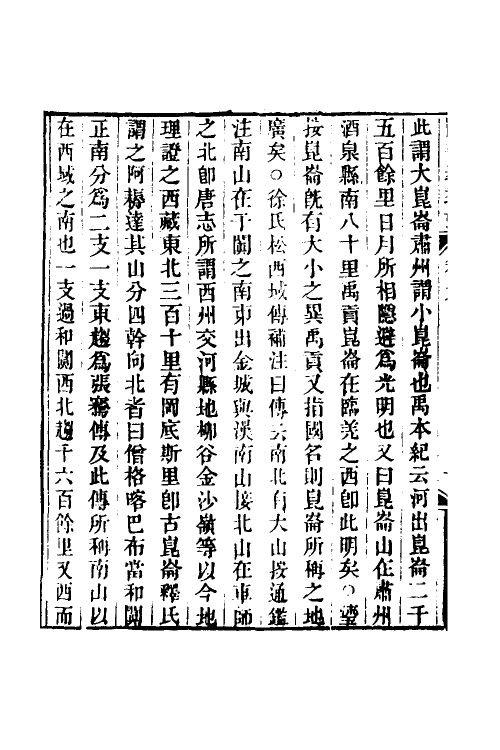 此謂大崑崙肅州謂小崑崙也禹本紀云河出崑崙二千
五百餘里日月所相隱避爲光明也又曰崑崙山在肅州
酒泉縣南八十里禹貢崑崙在臨羗之西卽此明矣○鎣
按崑崙旣有大小之異禹貢又指國名則崑崙所稱之地
廣矣○徐氏松西域傳補注曰傳云南北有大山按通鑑
注南山在于闐之南東出金城與漢南山接北山在車師
之北卽唐志所謂西州交河縣地柳谷金沙嶺等以今地
理證之西藏東北三百十里有岡底斯里卽古崑崙釋氏
謂之阿耨達其山分四幹向北者曰僧格喀巴布當和闐
正南分爲二支一支東趨爲張騫傳及此傳所稱南山以
在西域之南也一支過和闐西北趨千六百餘里又西而